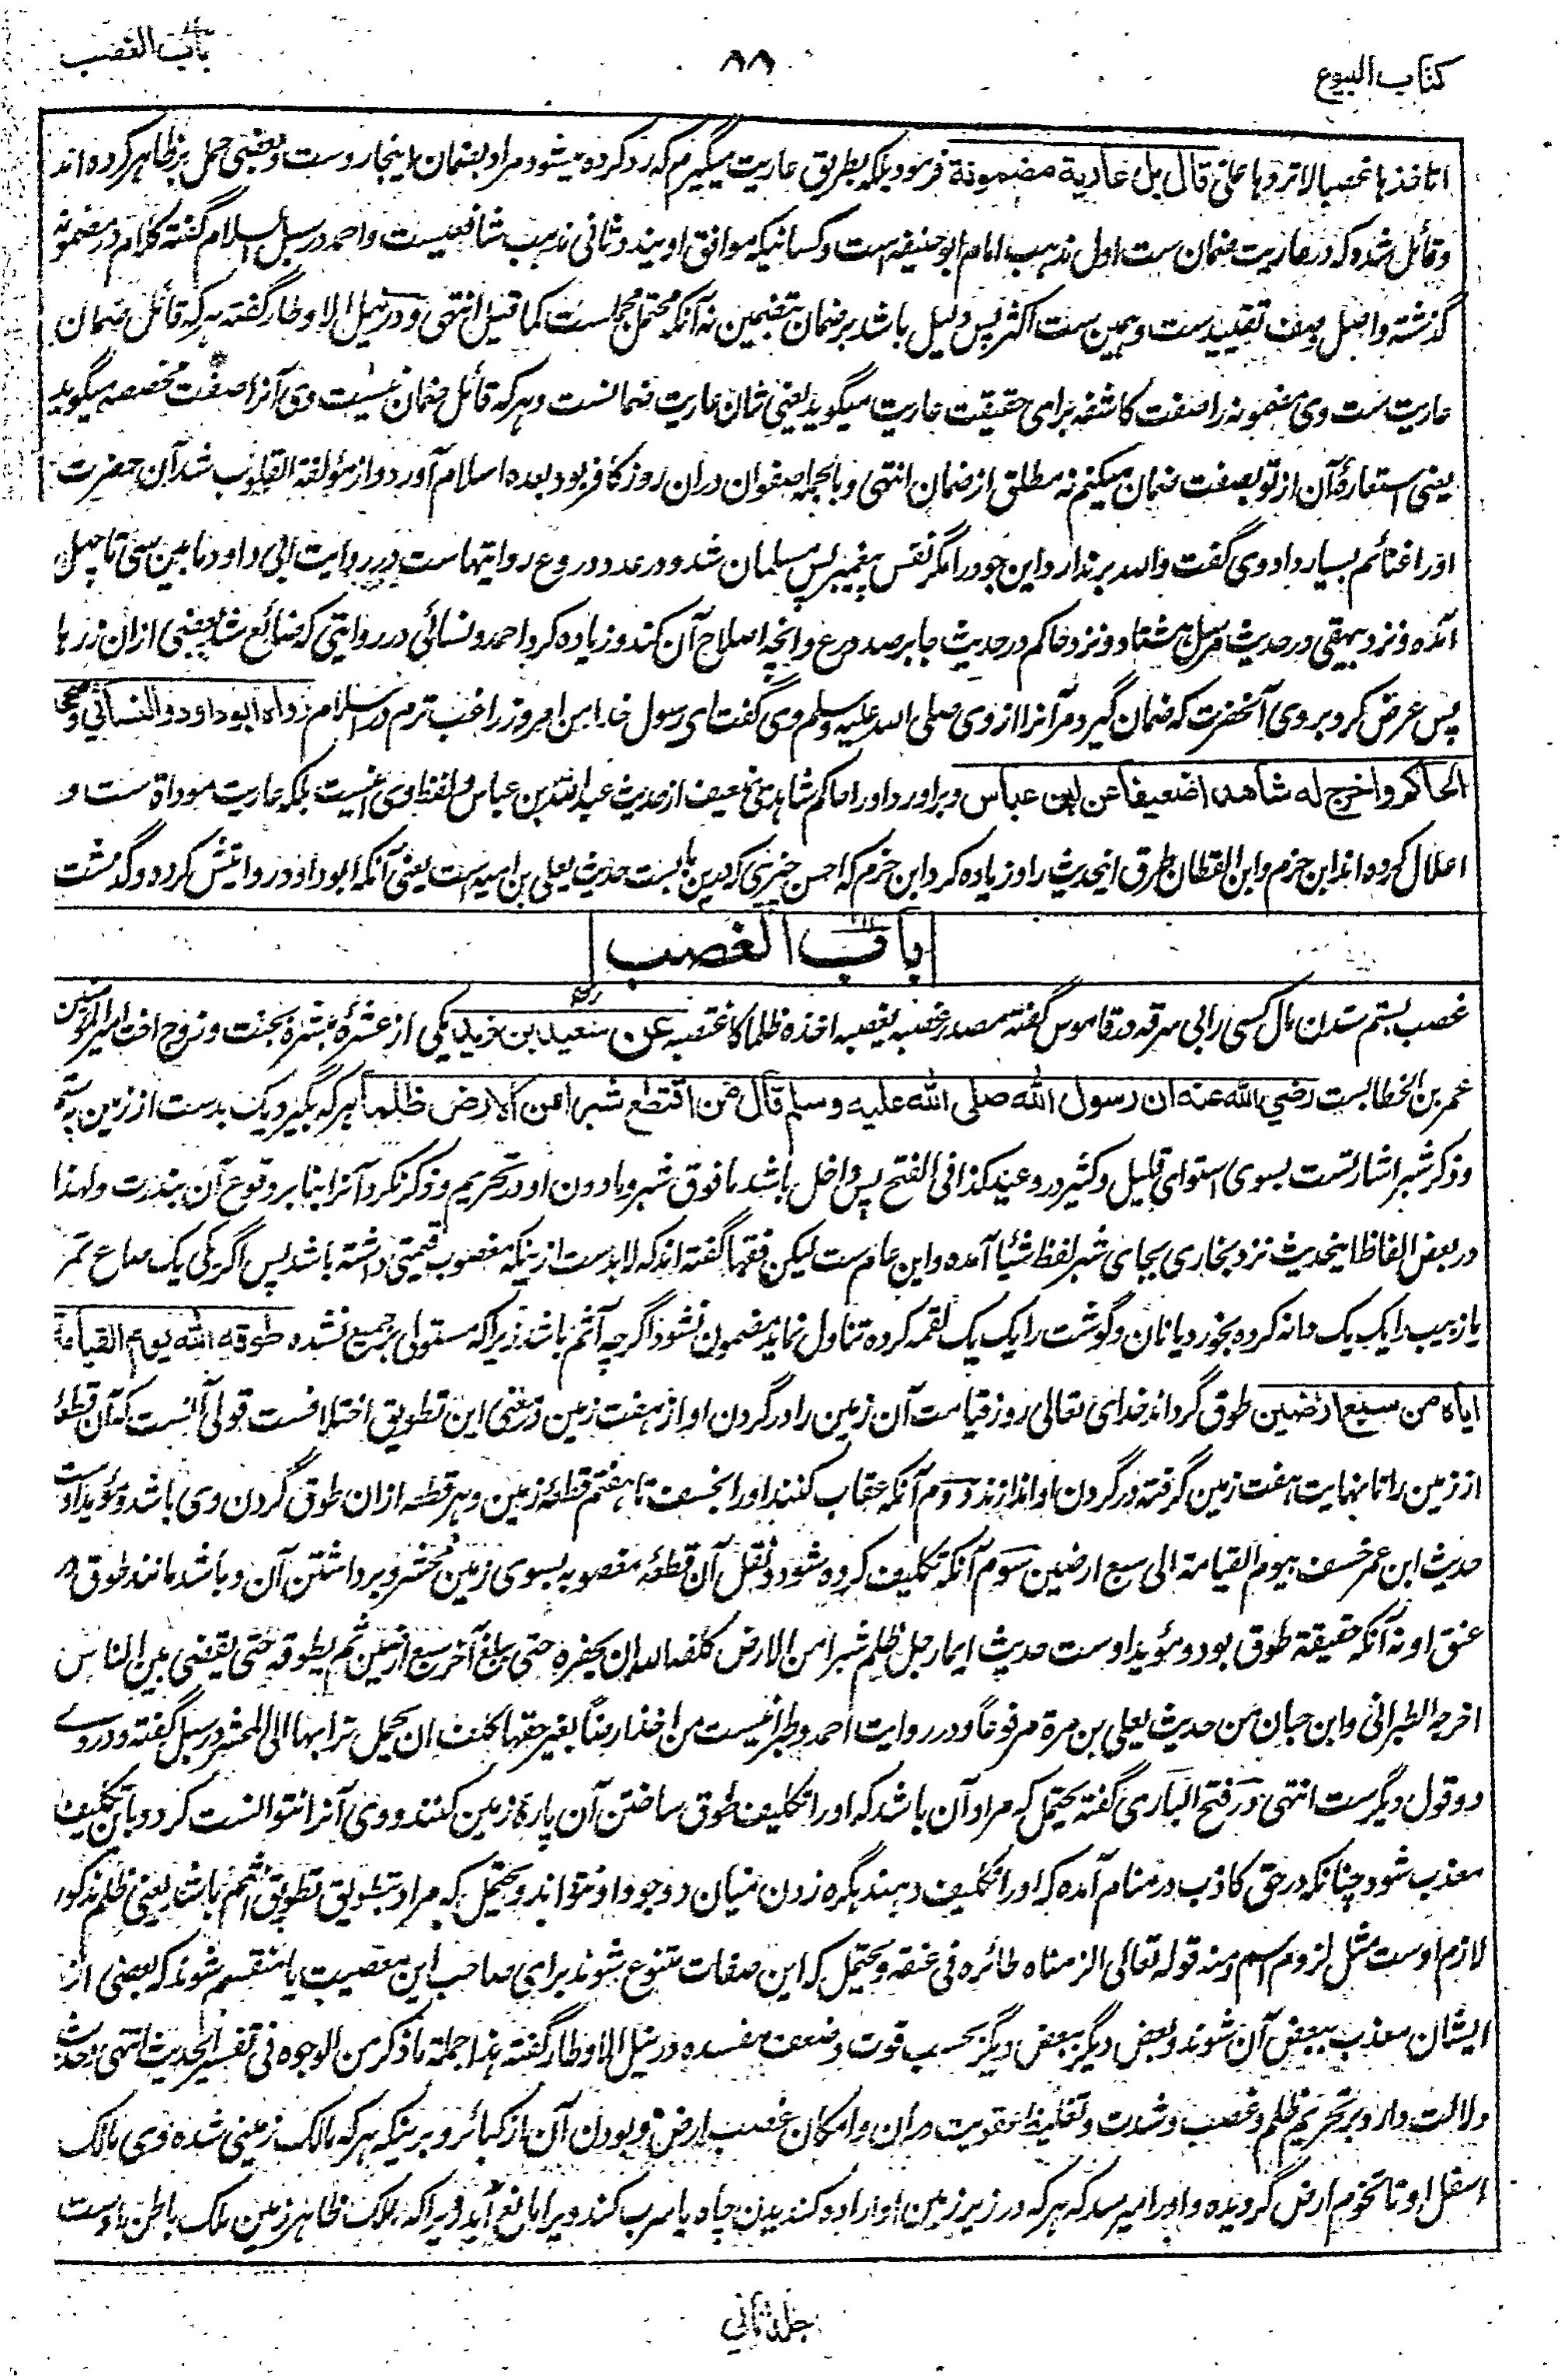 کتاب البیوع
۸۸
باب الغصب
اتاخذها غصبا لا تردها علی قال بل عاریة مضمونة فرمود بلکه بطریق عاریت میگیرم که رد کرده میشود مراد بضمان اینجا روست و بعضی حمل بر ظاهر کرده اند
و قائل شده که در عاریت ضمان ست اول مذهب امام ابو حنیفه است و کسانیکه موافق اویند و ثانی مذهب شافعیست و احمد در سبل السلام گفته کلام در مضمونه
گذشته و اصل وصف تقیید ست و همین ست اکثر پس دلیل باشد بر ضمان بتضمین نه آنکه محتمل مجملست کما قیل انتهی و در نیل الاوطار گفته هر که قائل ضمان
عاریت ست وی مضمونه را صفت کاشفه برای حقیقت عاریت میگوید یعنی شان عاریت ضمانست و هر که قائل ضمان نیست وی آنرا صفت مخصصه میگوید
یعنی استعارۀ آن از تو بصفت ضمان میکنم نه مطلق از ضمان انتهی و بالجمله صفوان دران روز کافر بود بعده اسلام آورد و از مؤلفة القلوب شد آن حضرت
او را غنائم بسیار داد وی گفت والله بر ندارد این جود را مگر نفس پیغمبر پس مسلمان شد و در عدد دروع روایتهاست در روایت ابی داود ما بین سی تا چهل
آمده و نزد بیهقی در حدیث مرسل هشتاد و نزد حاکم در حدیث جابر صد درع و انچه اصلاح آن کند و زیاده کرد احمد و نسائی در روایتی که ضائع شد بعضی ازان زرها
پس عرض کرد بر وی آنحضرت که ضمان گیرد مر آنرا از وی صلی الله علیه وسلم وی گفت ای رسول خدا من امروز راغب ترم در اسلام رواه ابو داود والنسائی وصححه
الحاکم واخرج له شاهدا ضعیفا عن ابن عباس و برآورد او را حاکم شاهدی ضعیف از حدیث عبد الله بن عباس و لفظ وی اینست بلکه عاریت موداة ست و
اعلال کرده اند ابن حزم و ابن القطان طرق اینحدیث را و زیاده کرد ابن حزم که احسن چیزی که درین باب ست حدیث یعلی بن امیه است یعنی آنکه ابو داود روایتش کرده و گذشت
باب الغصب
غصب بستم ستدن مال کسی را بی سرقه در قاموس گفته مصدر غصبه یغصبه اخذه ظلما کاغتصبه عن سعید بن زید یکی از عشرۀ مبشرۀ بجنت و زوج اخت امیر المؤمنین
عمر بن الخطاب ست رضی الله عنه ان رسول الله صلی الله علیه وسلم قال من اقتطع شبرا من الارض ظلما هر که بگیرد یک بدست از زمین بستم
و ذکر شبر اشارتست بسوی استوای قلیل و کثیر در وعید کذا فی الفتح پس داخل باشد ما فوق شبر و ما دون او در تحریم و ذکر نکرد آنرا بنا بر وقوع آن بندرت و لهذا
در بعض الفاظ اینحدیث نزد بخاری بجای شبر لفظ شیئا آمده و این عام ست لیکن فقها گفته اند که لابدست از ینکه مغصوب قیمتی داشته باشد پس اگر یکی یک صاع تمر
یا زبیب را یک یک دانه کرده بخورد یا نان و گوشت را یک یک لقمه کرده تناول نماید مضمون نشود اگرچه آثم باشد زیراکه مستولی بر جمیع نشده طوقه الله یوم القیامة
ایاه من سبع ارضین طوق گرداند خدای تعالی روز قیامت آن زمین را در گردن او از هفت زمین در معنی این تطویق اختلافست قولی آنست که آن قطعه
از زمین را تا بنهایت هفت زمین گرفته در گردن او اندازند دوم آنکه عقاب کنند او را بخسف تا هفتم قطعۀ زمین و هر قطعه ازان طوق گردن وی باشد و مؤید اوست
حدیث ابن عمر خسف به یوم القیامة الی سبع ارضین سوم آنکه تکلیف کرده شود و نقل آن قطعۀ مغصوبه بسوی زمین محشر و برداشتن آن و باشد مانند طوق در
عنق او نه آنکه حقیقة طوق بود و مؤید اوست حدیث ایما رجل ظلم شبرا من الارض کلفه الله ان یحفره حتی یبلغ آخر سبع ارضین ثم یطوقه حتی یقضی بین الناس
اخرجه الطبرانی و ابن حبان من حدیث یعلی بن مرة مرفوعا و در روایت احمد و طبرانیست من اخذ ارضا بغیر حقها کلف ان یحمل ترابها الی المحشر در سبل گفته و درو
دو قول دیگرست انتهی در فتح الباری گفته یحتمل که مراد آن باشد که او را تکلیف طوق ساختن آن پارۀ زمین کنند و وی آنرا نتوانست کرد و باین تکلیف
معذب شود چنانکه در حق کاذب در منام آمده که او را تکلیف دهند بگره زدن میان دو جو و او نتواند و یحتمل که مراد بتطویق تطویق اثم باشد یعنی ظلم مذکور
لازم اوست مثل لزوم اسم و منه قوله تعالی الزمناه طائره فی عنقه و یحتمل که این صفات متنوع شوند برای صاحب این معصیت یا منقسم شوند که بعضی از
ایشان معذب ببعض آن شوند و بعض دیگر ببعض دیگر بحسب قوت و ضعف مفسده در نیل الاوطار گفته هذا جملة ما ذکر من الوجوه فی تفسیر الحدیث انتهی و حدیث
دلالت دارد بر تحریم ظلم و غصب و شدت و تغلیظ عقوبت دران و امکان غصب ارض و بودن آن از کبائر و برینکه هر که مالک زمینی شده وی مالک
اسفل او تا تخوم ارض گردیده و او را میرسد که هر که در زیر زمین او اراده کندیدن چاه یا سرب کند ویرا مانع آید زیراکه مالک ظاهر زمین مالک باطن اوست
جلد ثانی